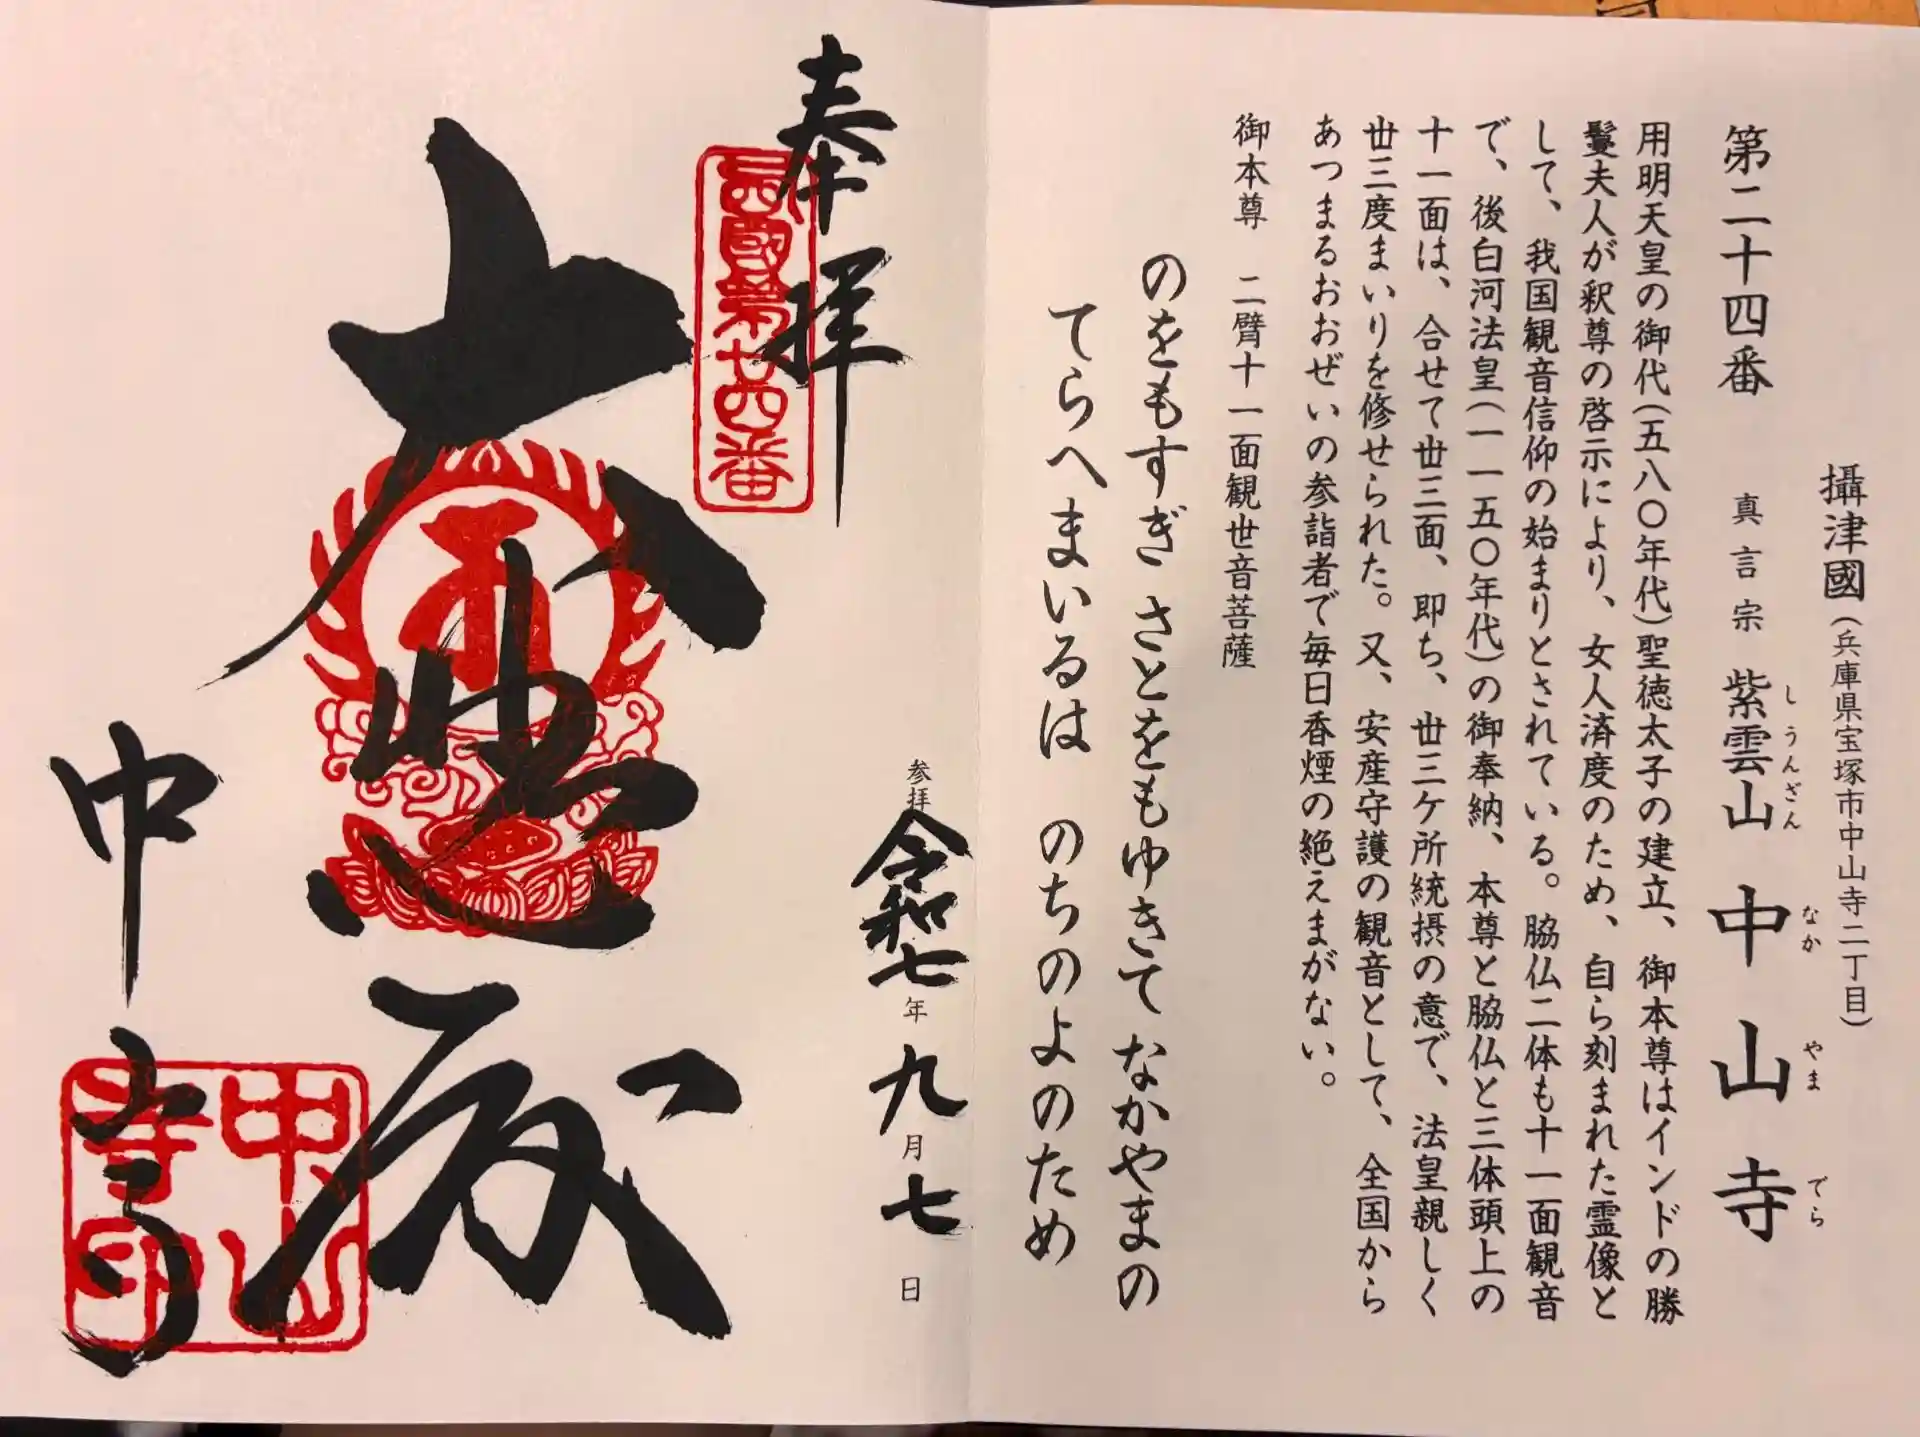 攝津國(兵庫県宝塚市中山寺二丁目)
第二十四番 真言宗 紫雲山 中山寺
しうんざん なかやまでら
用明天皇の御代(五八〇年代)聖徳太子の建立、御本尊はインドの勝
鬘夫人が釈尊の啓示により、女人済度のため、自ら刻まれた霊像と
して、我国観音信仰の始まりとされている。脇仏二体も十一面観音
で、後白河法皇(一一五〇年代)の御奉納、本尊と脇仏と三体頭上の
十一面は、合せて丗三面、即ち、丗三ケ所統摂の意で、法皇親しく
丗三度まいりを修せられた。又、安産守護の観音として、全国から
あつまるおおぜいの参詣者で毎日香煙の絶えまがない。
御本尊 二臂十一面観世音菩薩
のをもすぎ さとをもゆきて なかやまの
てらへまいるは のちのよのため
奉拝
西國第廿四番
参拝 令和七年九月七日
大悲殿
中山寺
中山寺印